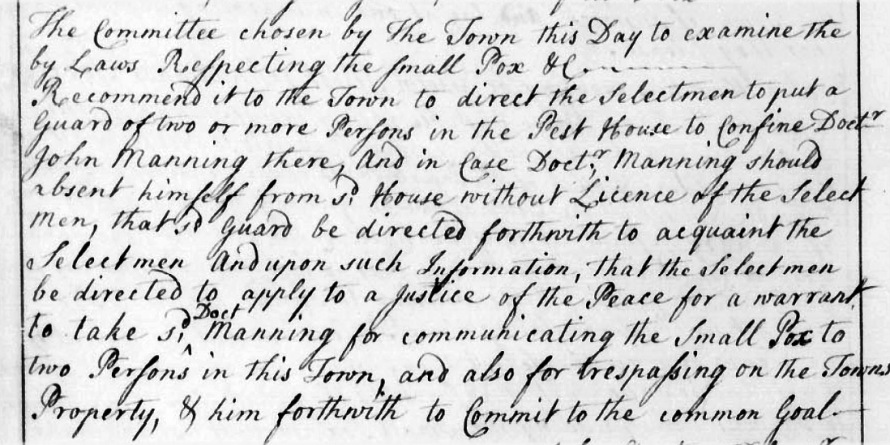 The Committee chosen by The Town this Day to examine the
by Laws Respecting the small Pox &C.
Recommend it to the Town to direct the Selectmen to put a
Guard of two or more Persons in the Pest House to Confine Doctr
John Manning there, And in Case Doctr. Manning should
absent himself from sd. House without Licence of the Select
men, that sd Guard be directed forthwith to acquaint the
Selectmen And upon such Information, that the Selectmen
be directed to apply to a Justice of the Peace for a warrant
to take sd. Doct Manning for communicating the Small Pox to
two Persons in this Town, and also for trespassing on the Towns
Property, & him forthwith to Commit to the common Goal